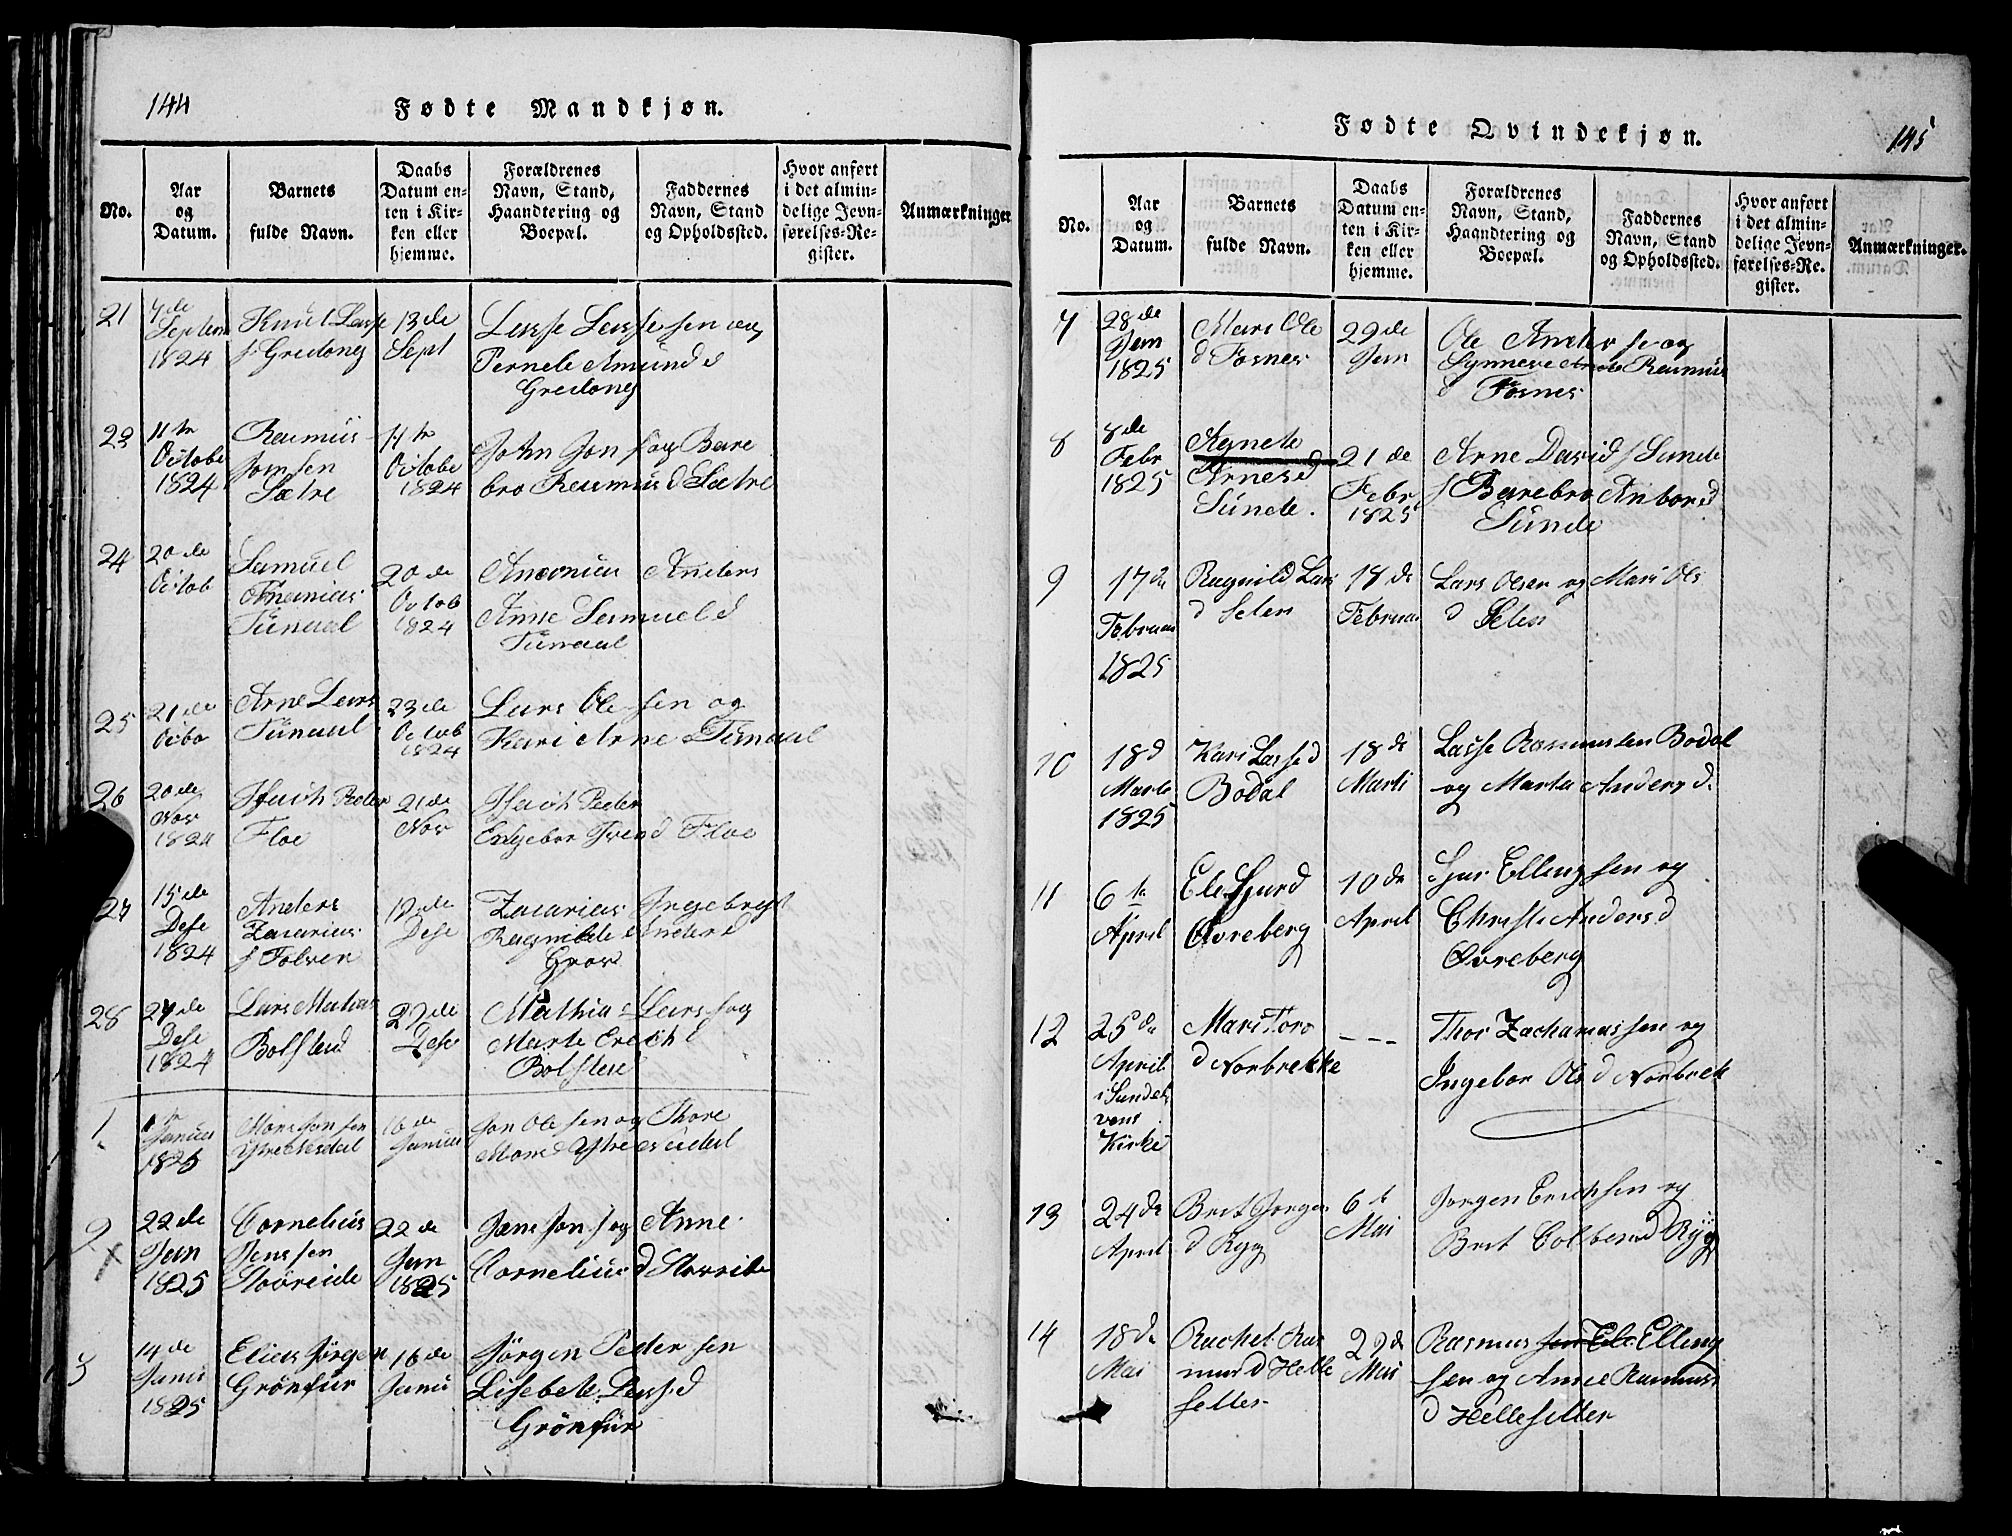 144
Fødte Mandkjøn.
No.
Aar og Datum.
Barnets fulde Navn.
Daabs Datum enten i Kirken eller hjemme.
Forældrenes Navn, Stand, Haandtering og Boepæl.
Faddernes Navn, Stand og Opholdssted.
Hvor anført i det almindelige Jevnførelses-Register.
Anmærkninger
21
Septem
1824
Knut Lasse
s Gredong
13de
Sept
Lasse Lassesen og
Pernele Amund d
Gredong
11te
Octobe
1824
Rasmus
Jonsen
Sætre
Octobe
1824
John Jon s og Bare
bro Rasmus d Sætre
24
20de
Octob
Samuel
Ananias
Tunaal
20de
Octob
1824
Ananias Anders
Anne Samuel d
Tunaal
25
21de
Octo
Arne Lars
Tunaal
23de
Octob
1824
Lars Olesen og
Kari Arne d Tunaal
26
20de
Nov
1824
Peder
Floe
21de
Nov
Peder
d Floe
15de
Dese
1824
Anders
Zacarias
s Folven
Dese
Zacarias Ingebrigt
Ragnilde Anders d
Grov
28
Dese
1824
Lars Mathias
Bolstad
27de
Dese
Mathias Lars s og
Marte Erich d
Bolstad
1
Januar
1825
Mons Jonsen
16de
Januar
Jon Olesen og Thore
Mons d
2
22de
Jan
1825
Cornelius
Jenssen
Stoøreide
22de
Jan
1825
Jens Jon s og Anne
Cornelius d Storeide
3
14de
Janu
1825
Elias Jørgen
Grönfur
16de
Janu
Jørgen Pedersen
Lisebete Lasse d
Grönfur
145
Fødte Qvindekjøn.
No.
Aar og Datum.
Barnets fulde Navn.
Daabs Datum enten i Kirken eller hjemme.
Forældrenes Navn, Stand, Haandtering og Boepæl.
Faddernes Navn, Stand og Opholdssted.
Hvor anført i det almindelige Jevnførelses-Re.gister.
Anmærkninger.
7
28de
Jan
1825
Mari Ole
d Fosnes
29de
Jan
Ole Anders s og
Synneve Rasmus
d Fosnes
8
8de
Febr
1825
Agnete
Arnes d
Sunde.
21de
Febr
1825
Arne David s Sunde
Barebro Anbor d
Sunde
9
17de
Februar
1825
Ragnild Lars
d Selen
18de
Februar
Lars Olsen og Mari Ols
d Selen
10
18d
Marts
1825
Kari Lasse d
Bodal
18de
Marts
Lasse Rasmussen Bodal
og Marta Anders d.
11
6te
April
Eli Sjurd
Øvreberg
10de
April
Sjur Ellingsen og
Christi Anders d
Øvreberg
12
25de
April
i Sundel,
vens
Kirke
Mari Tors
d Norbrekke
- - -
Thor Zachariassen og
Ingebor Ols d Norbrek
13
24de
April
Brit Jorgen
d Ryg
6t
Mai
Jorgen Erichsen og
Brit Colben d Ryg
14
18de
Mai
Rachel Ras
mus d Helle
setter
29de
Mai
Rasmus Elling
sen og Anne Rasmus
d Hellesetter